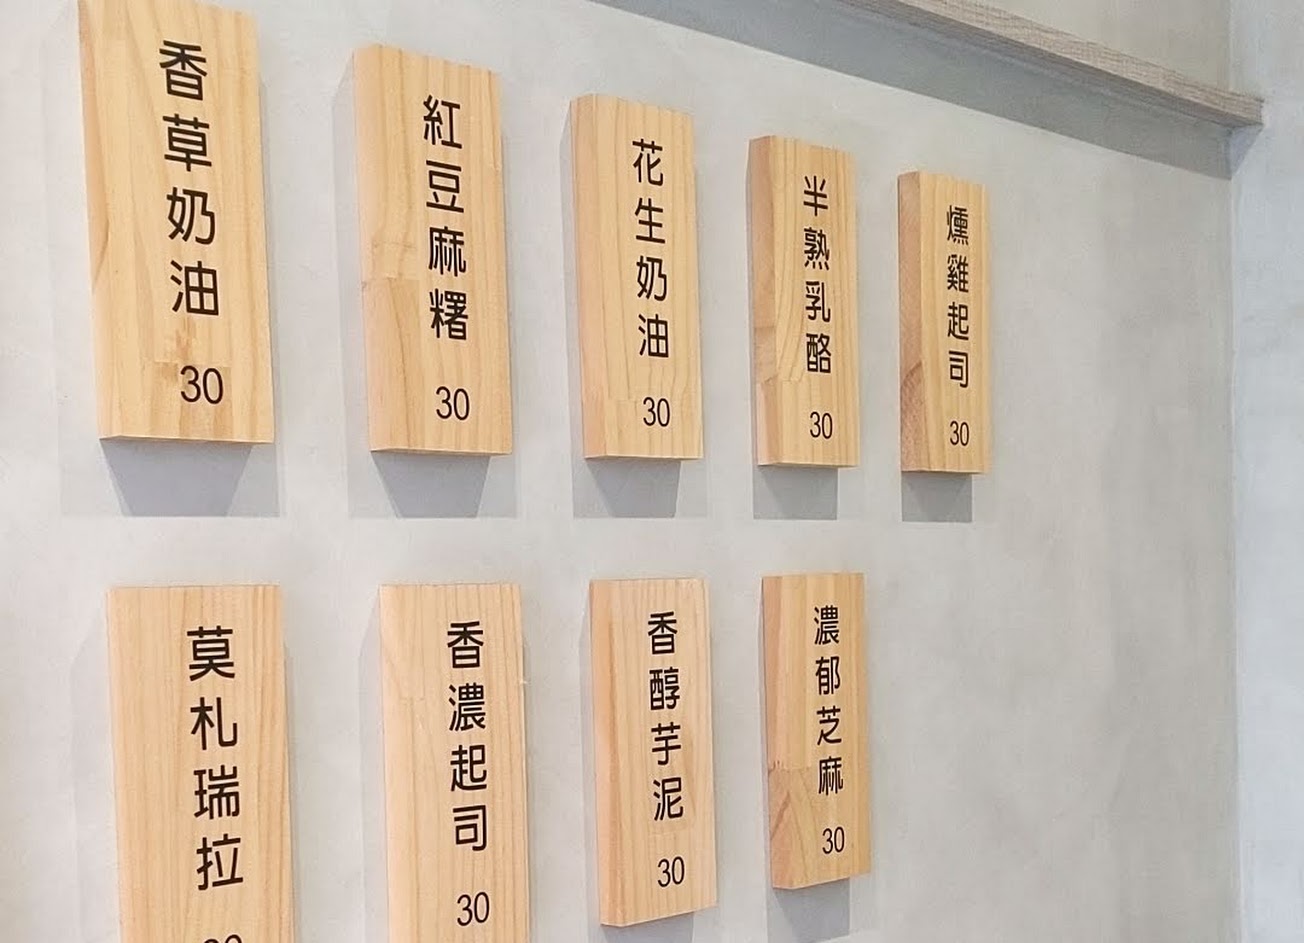 香草奶油
30
紅豆麻糬
30
花生奶油
30
半熟乳酪
30
燻雞起司
30
莫札瑞拉
30
香濃起司
30
香醇芋泥
30
濃郁芝麻
30